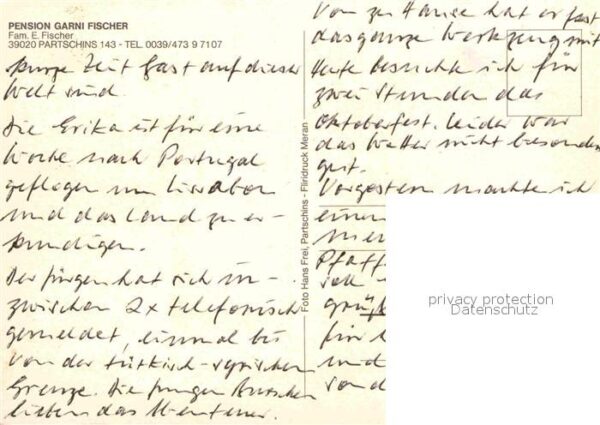 PENSION GARNI FISCHER
Fam. E. Fischer
39020 PARTSCHINS 143 - TEL. 0039/473 9 7107
kurze Zeit Gast auf dieser
Welt sind.
Die Erika ist für eine
Woche nach Portugal
geflogen um Lissabon
und das Land zu er-
kundigen.
Der Jürgen hat sich in-
zwischen 2x telefonisch
gemeldet, einmal bis
von der türkisch-syrischen
Grenze. Die jungen Burschen
lieben das Abenteuer.
Foto Hans Frei, Partschins - Fliridruck Meran
Von zu Hause hat er fast
das ganze Werkzeug mit
Heute besuchte ich für
zwei Stunden das
Oktoberfest. Leider war
das Wetter nicht besonders
gut.
Vorgestern machte ich
einen
Pfaff
für
und
von d
privacy protection
Datenschutz